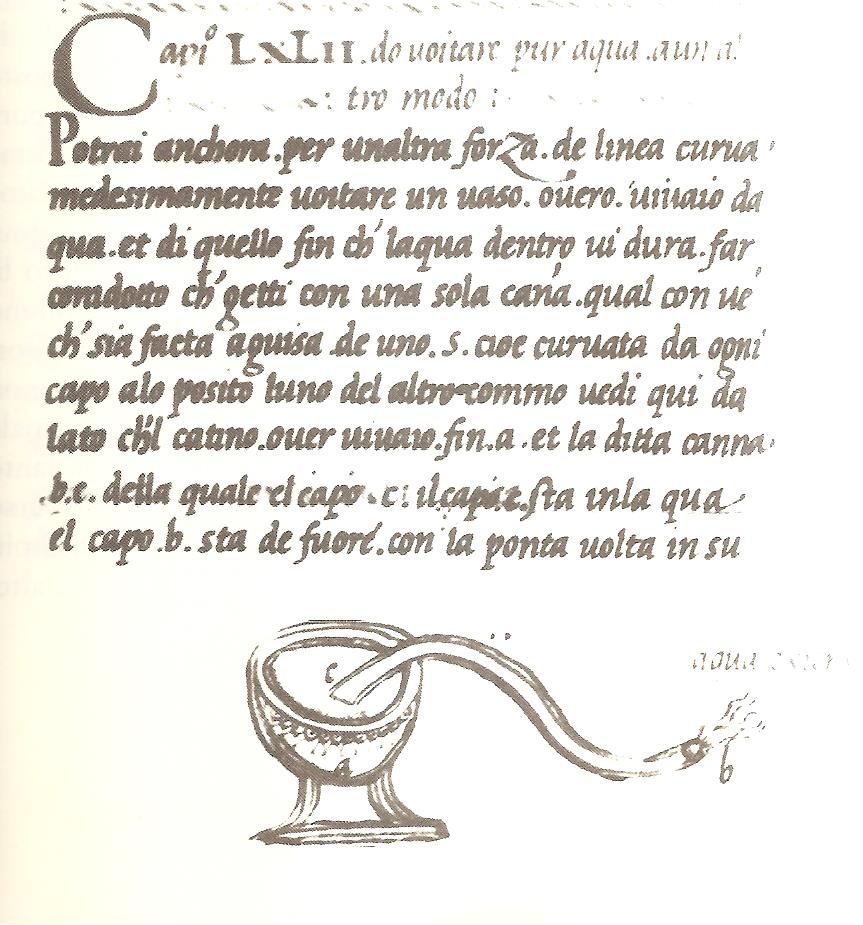 Capi° LXLII. do uoitare pur aqua .aun al
tro modo :
Potrai anchora .per unaltra forza. de linea curua
medesimamente uoitare un uaso. ouero. uiuaio da
qua .et di quello fin ch' laqua dentro ui dura .far
condotto ch' getti con una sola cana .qual con ue
ch' sia facta aguisa .de uno. s. cioe curuata da ogni
capo alo posito luno del altro commo uedi qui da
lato ch'l catino .ouer uiuaio .fin .a. et la ditta canna.
.b.c. della quale el capo .c. sta inla qua
el capo .b. sta de fuore .con la ponta uolta in su
c
aqua
b
A